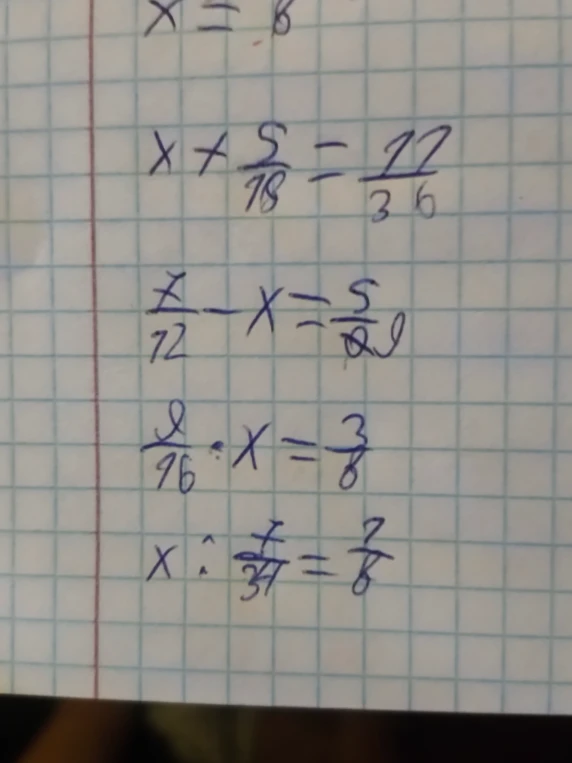 x = 8
x + 5/18 = 11/36
7/12 - x = 5/9
9/16 · x = 3/8
x : 7/34 = 1/8